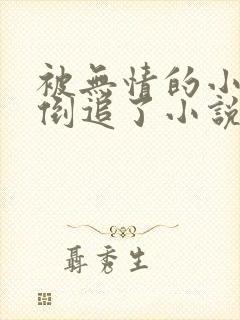 被無情的小
倒追了小說
聶秀生